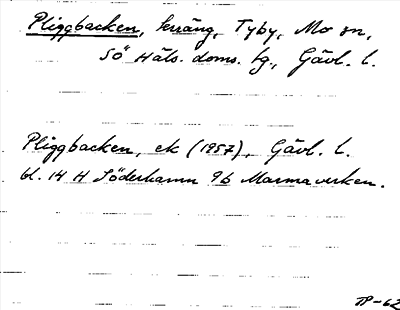 Pliggbacken, terräng, Tyby, Mo sn,
Sö Häls. doms. tg., Gävl. l.
Pliggbacken, ek (1957), Gävl. l.
bl. 14 H Söderhamn 9b Marmaverken.
JP-62